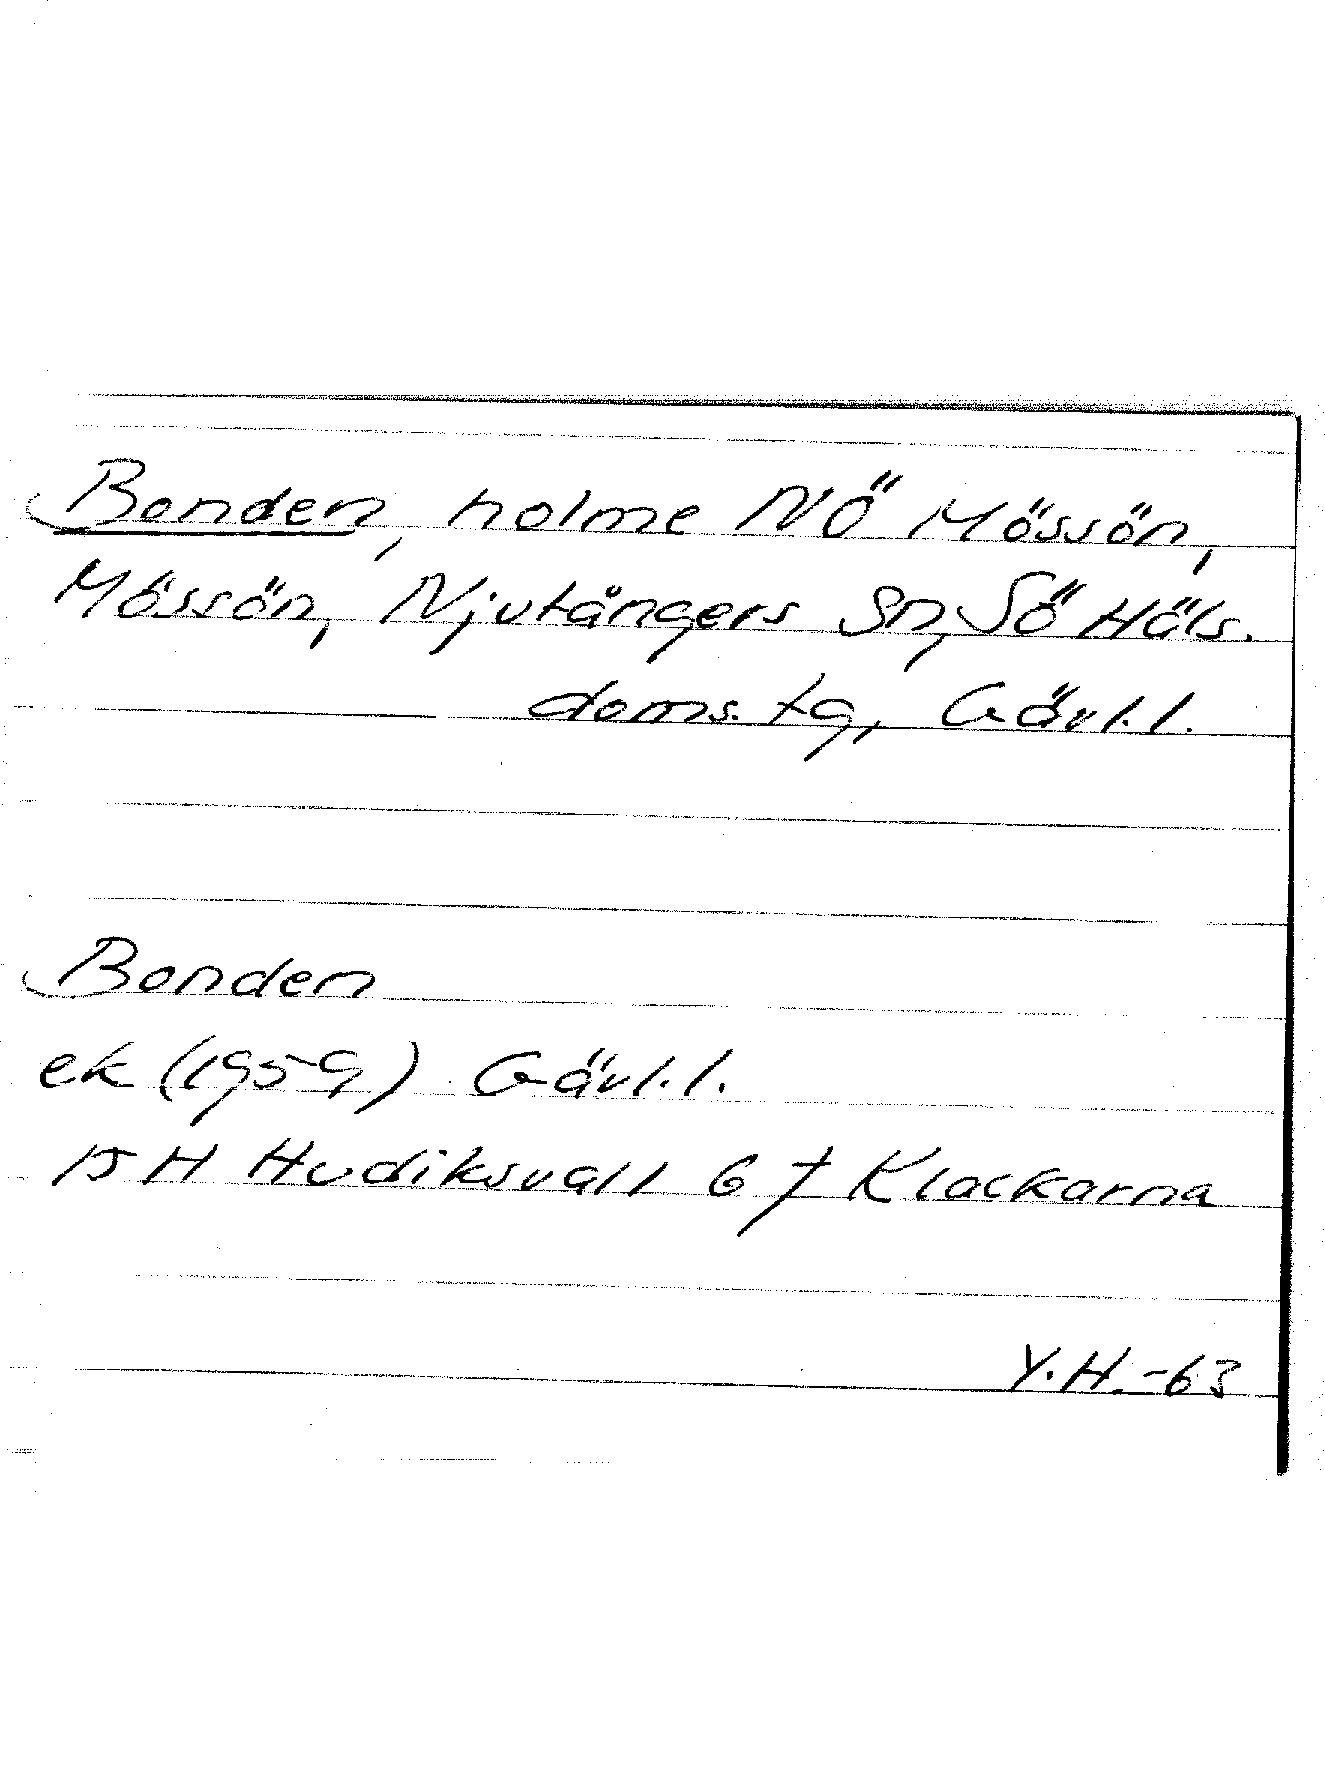 Bonden, holme NÖ Mössön,
Mössön, Njutångers sn, SÖ Häls.
doms. tg, Gävl.l.
Bonden
ek (1959) Gävl.l.
15 H Hudiksvall 6 f Klackarna
Y.H.-63